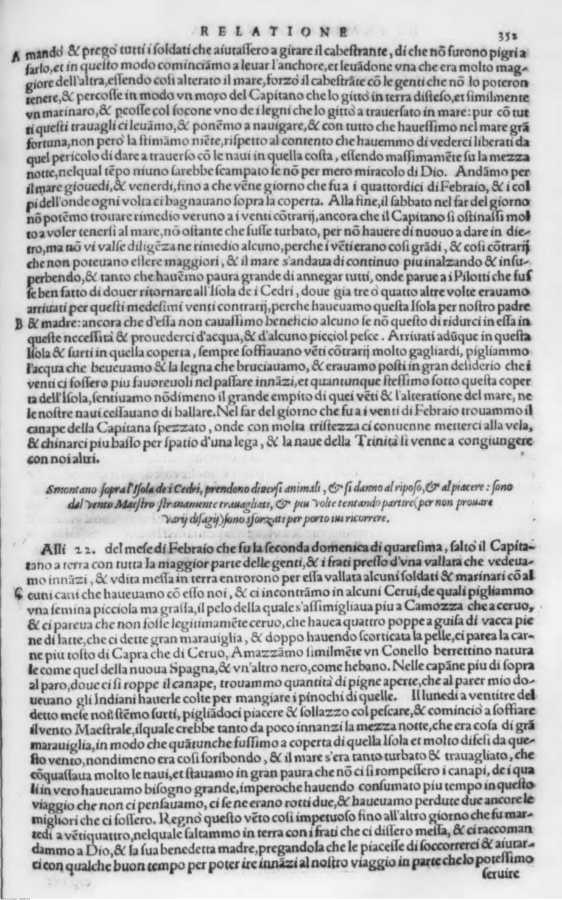 RELATIONE
352
A mandò & pregò tutti i soldati che aiutassero a girare il cabestrante, di che nõ furono pigri a
farlo, et in questo modo cominciámo a leuar l'anchore, et leuádone vna che era molto mag-
giore dell'altra, essendo cosi alterato il mare, forzò il cabestrãte cõ le genti che nõ lo poteron
tenere, & percosse in modo vn moro del Capitano che lo gittò in terra disteso, et similmente
vn marinaro, & pcosse col focone vno de i legni che lo gittò a trauersato in mare: pur cõ tut
ti questi trauagli ci leuámo, & ponémo a nauigare, & con tutto che hauessimo nel mare grã
fortuna, non però la stimámo niéte, rispetto al contento che hauemmo di vederci liberati da
quel pericolo di dare a trauerso cõ le naui in quella costa, essendo massimaméte su la mezza
notte, nelqual tẽpo niuno sarebbe scampato se nõ per mero miracolo di Dio. Andámo per
il mare giouedi, & venerdi, fino a che vẽne giorno che fu a i quattordici di Febraio, & i col
pi dell'onde ogni volta ci bagnauano sopra la coperta. Alla fine, il sabbato nel far del giorno
nõ potémo trouare rimedio veruno a i venti cõtrarij, ancora che il Capitano si ostinassi mol
to a voler tenersi al mare, nõ ostante che fusse turbato, per nõ hauere di nuouo a dare in die-
tro, ma nõ vi valse diligẽza ne rimedio alcuno, perche i vẽti erano cosi grãdi, & cosi cõtrarij
che non poteuano essere maggiori, & il mare s'andaua di continuo piu inalzando & insu-
perbendo, & tanto che hauémo paura grande di annegar tutti, onde parue a i Pilotti che fus
se ben fatto di douer ritornare all'Isola de i Cedri, doue gia tre ò quatto altre volte erauamo
arriuati per questi medesimi venti contrarij, perche haueuamo questa Isola per nostro padre
B & madre: ancora che d'essa non cauassimo beneficio alcuno se nõ questo di ridurci in essa in
queste necessità & prouederci d'acqua, & d'alcuno picciol pesce. Arriuati adũque in questa
Isola & surti in quella coperta, sempre soffiauano vẽti cõtrarij molto gagliardi, pigliammo
l'acqua che beueuamo & la legna che bruciauamo, & erauamo posti in gran desiderio che i
venti ci fossero piu fauoreuoli nel passare innãzi, et quantunque stessimo sotto questa coper
ta dell'Isola, sentiuamo nõdimeno il grande empito di quei vẽti & l'alteratione del mare, ne
le nostre naui cessauano di ballare. Nel far del giorno che fu a i venti di Febraio trouammo il
canape della Capitana spezzato, onde con molta tristezza ci conuenne metterci alla vela,
& chinarci piu basso per spatio d'una lega, & la naue della Trinità si venne a congiungere
con noi altri.
Smontano sopra l'Isola de i Cedri, prendono diuersi animali, & si danno al riposo, & al piacere: sono
dal vento Maestro stranamente trauagliati, & piu volte tentando partire (per non prouare
varij disagij) sono sforzati per porto iui ricorrere.
Alli 22. del mese di Febraio che fu la seconda domenica di quaresima, saltò il Capita-
tano a terra con tutta la maggior parte delle genti, & i frati presso d'vna vallata che vedeua-
mo innãzi, & vdita messa in terra entrorono per essa vallata alcuni soldati & marinari cõ al
C cuni cani che haueuamo cõ esso noi, & ci incontrámo in alcuni Cerui, de quali pigliammo
vna femina picciola ma grassa, il pelo della quale s'assimigliaua piu a Camozza che a ceruo,
& ci pareua che non fosse legitimamẽte ceruo, che hauea quattro poppe a guisa di vacca pie
ne di latte, che ci dette gran marauiglia, & doppo hauendo scorticata la pelle, ci parea la car-
ne piu tosto di Capra che di Ceruo, Amazzámo similmẽte vn Conello berrettino natura
le come quel della nuoua Spagna, & vn'altro nero, come hebano. Nelle capãne piu di sopra
al paro, doue ci si roppe il canape, trouammo quantità di pigne aperte, che al parer mio do-
ueuano gli Indiani hauerle colte per mangiare i pinochi di quelle. Il lunedi a ventitre del
detto mese noi stẽmo surti, pigliãdoci piacere & sollazzo col pescare, & cominciò a soffiare
il vento Maestrale, ilquale crebbe tanto da poco innanzi la mezza notte, che era cosa di grã
marauiglia, in modo che quãtunche fussimo a coperta di quella Isola et molto difesi da que-
sto vento, nondimeno era cosi foribondo, & il mare s'era tanto turbato & trauagliato, che
cõquassaua molto le naui, et stauamo in gran paura che nõ ci si rompessero i canapi, de i qua
li in vero haueuamo bisogno grande, imperoche hauendo consumato piu tempo in questo
viaggio che non ci pensauamo, ci se ne erano rotti due, & haueuamo perdute due ancore le
migliori che ci fossero. Regnò questo vẽto cosi impetuoso fino all'altro giorno che fu mar-
tedi a vẽtiquattro, nelquale saltammo in terra con i frati che ci dissero messa, & ci raccoman
dammo a Dio, & la sua benedetta madre, pregandola che le piacesse di soccorrerci & aiutar-
ci con qualche buon tempo per poter ire innãzi al nostro viaggio in parte che lo potessimo
seruire